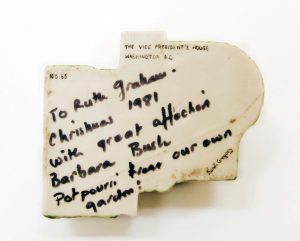 THE VICE PRESIDENT'S HOUSE
WASHINGTON D.C.
NO. 65
To Ruth Graham.
Christmas 1981
with great affection
Barbara Bush
Potpourri from our own
garden!